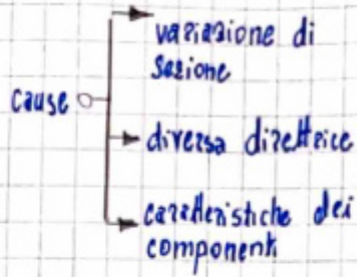 variazione di
sezione
cause
diversa direttrice
caratteristiche dei
componenti